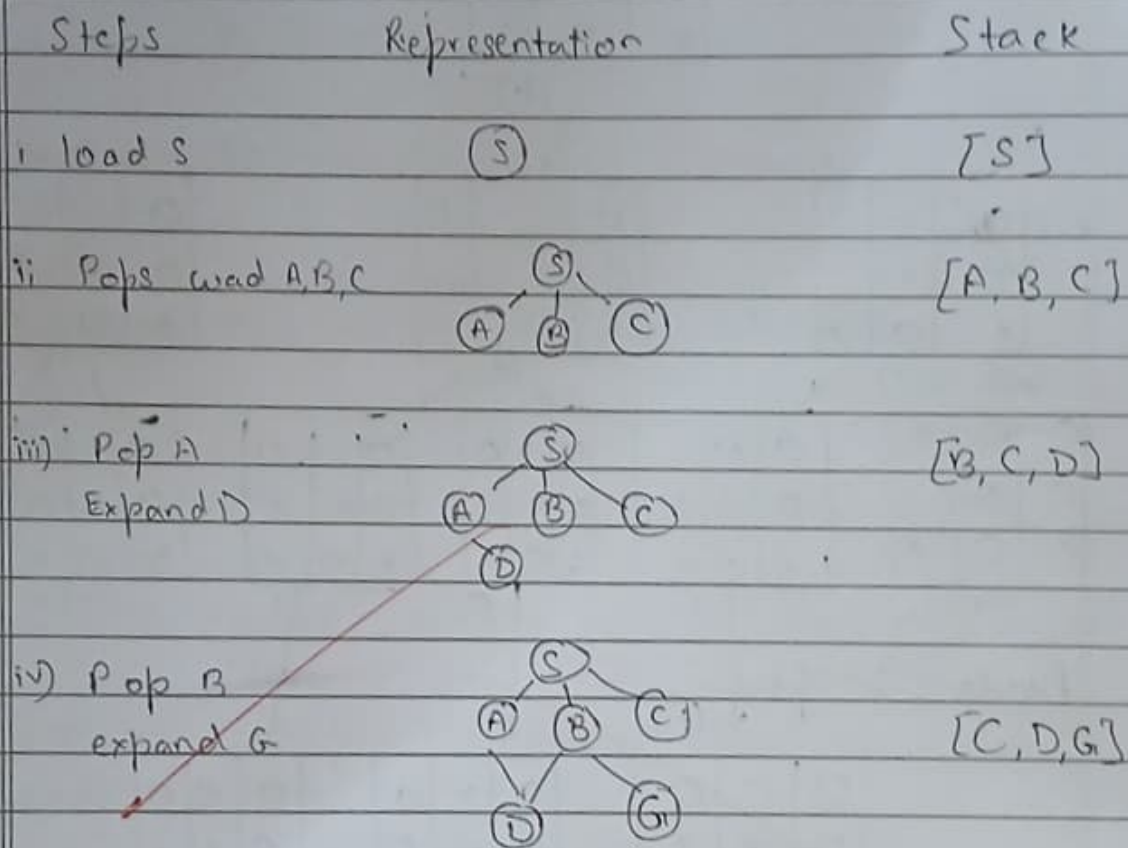 Steps Representation Stack
i load S S [S]
ii Pops load A, B, C S [A, B, C]
A B C
iii) Pop A S [B, C, D]
Expand D A B C
D
iv) Pop B S
A B C
expand G [C, D, G]
D G